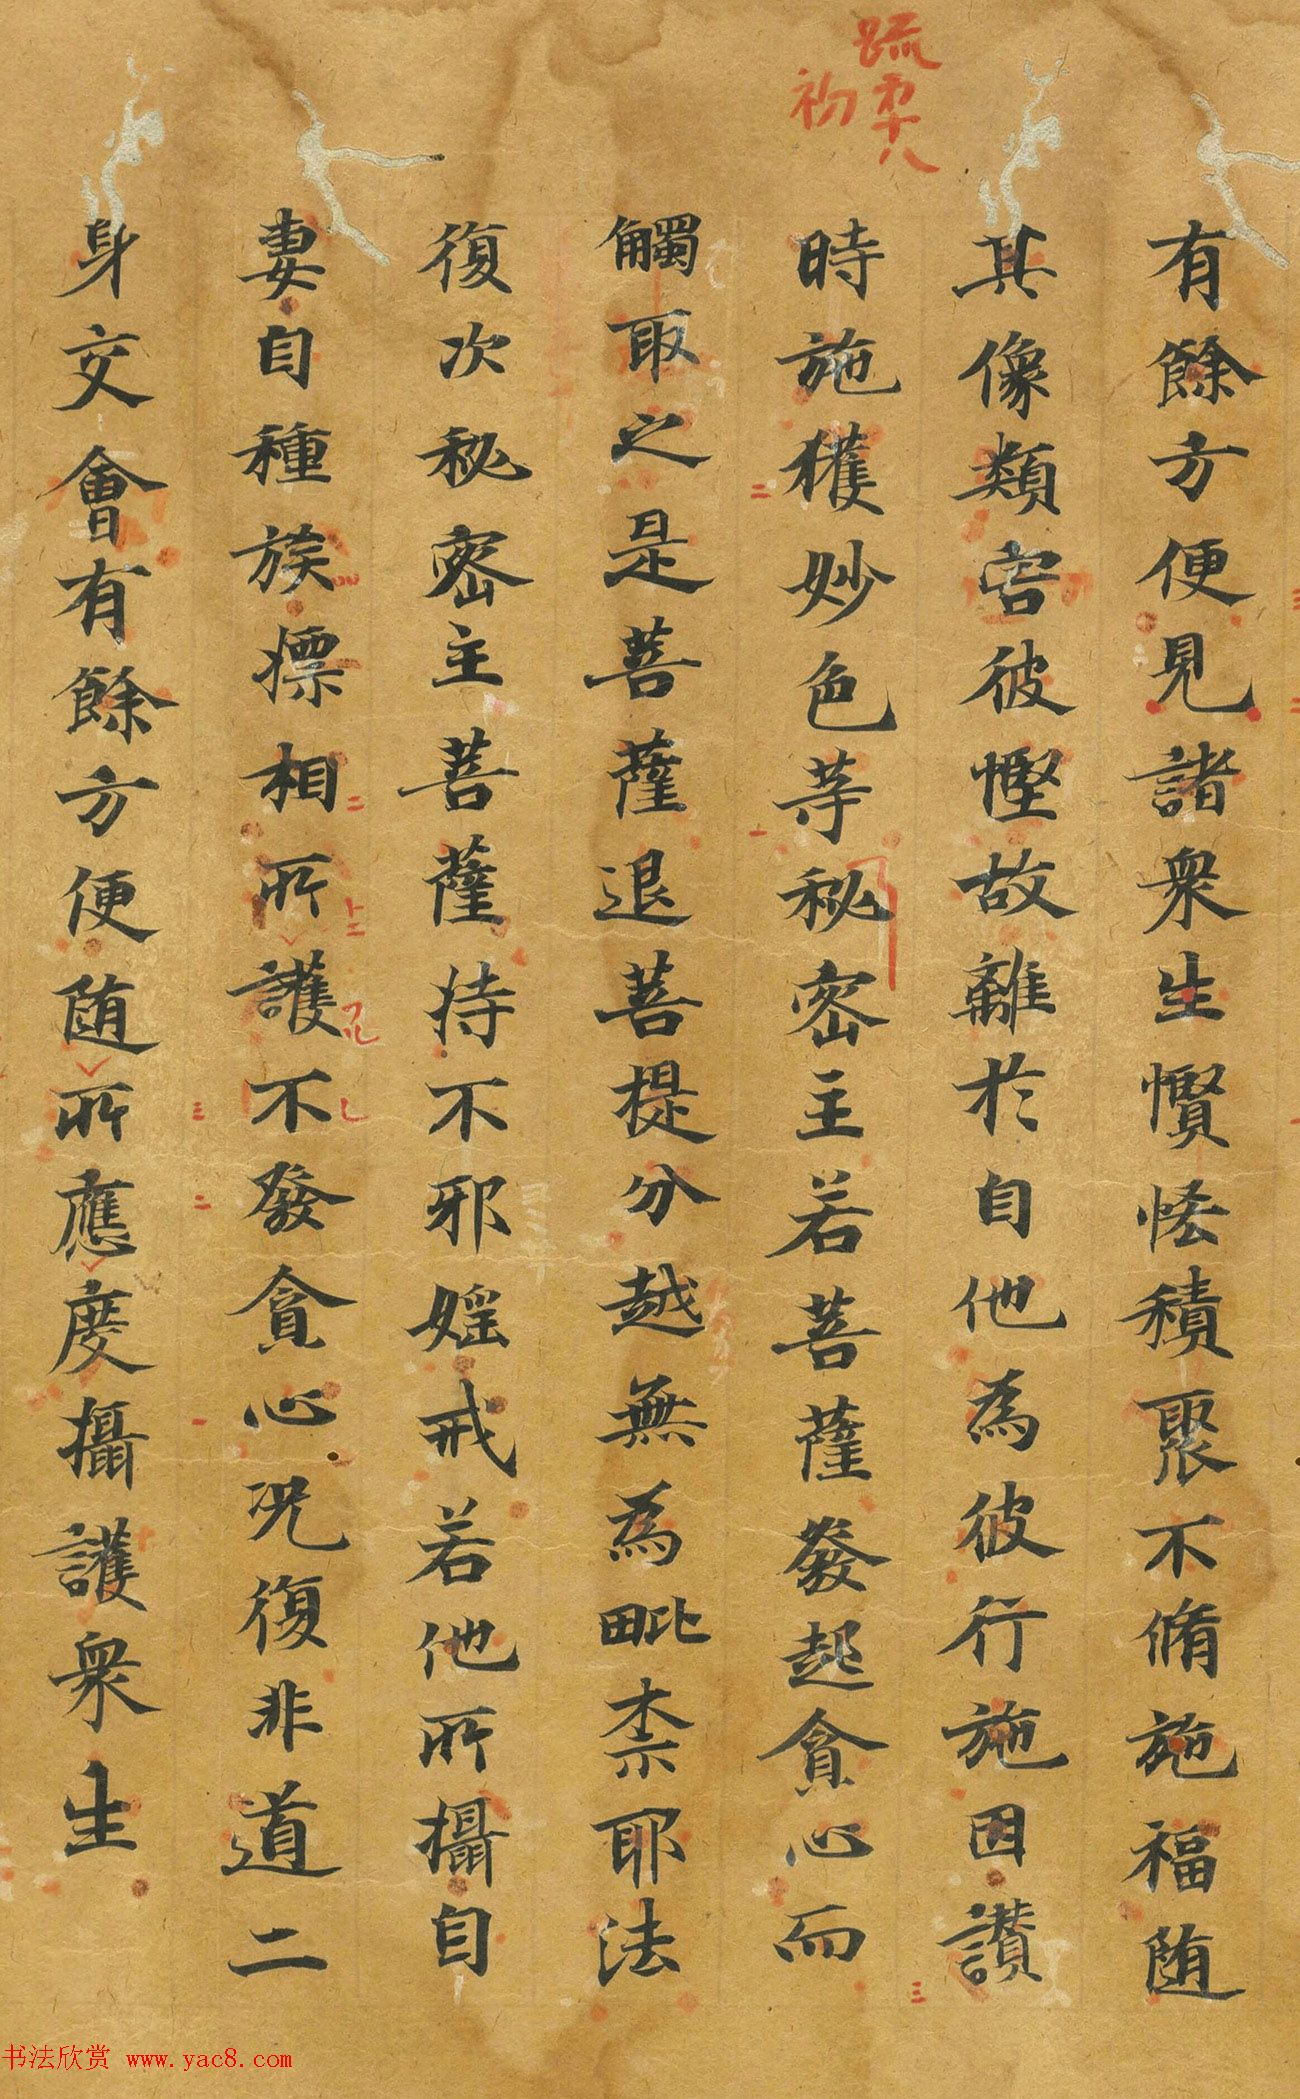 疏第十八
初
有餘方便見諸衆生慳悋積聚不脩施福随
其像類害彼慳故離於自他為彼行施因讃
時施獲妙色等秘密主若菩薩發起貪心而
觸取之是菩薩退菩提分越無為毗柰耶法
復次秘密主菩薩持不邪婬戒若他所攝自
妻自種族摽相所護不發貪心況復非道二
身交會有餘方便随所應度攝護衆生
书法欣赏 www.yac8.com